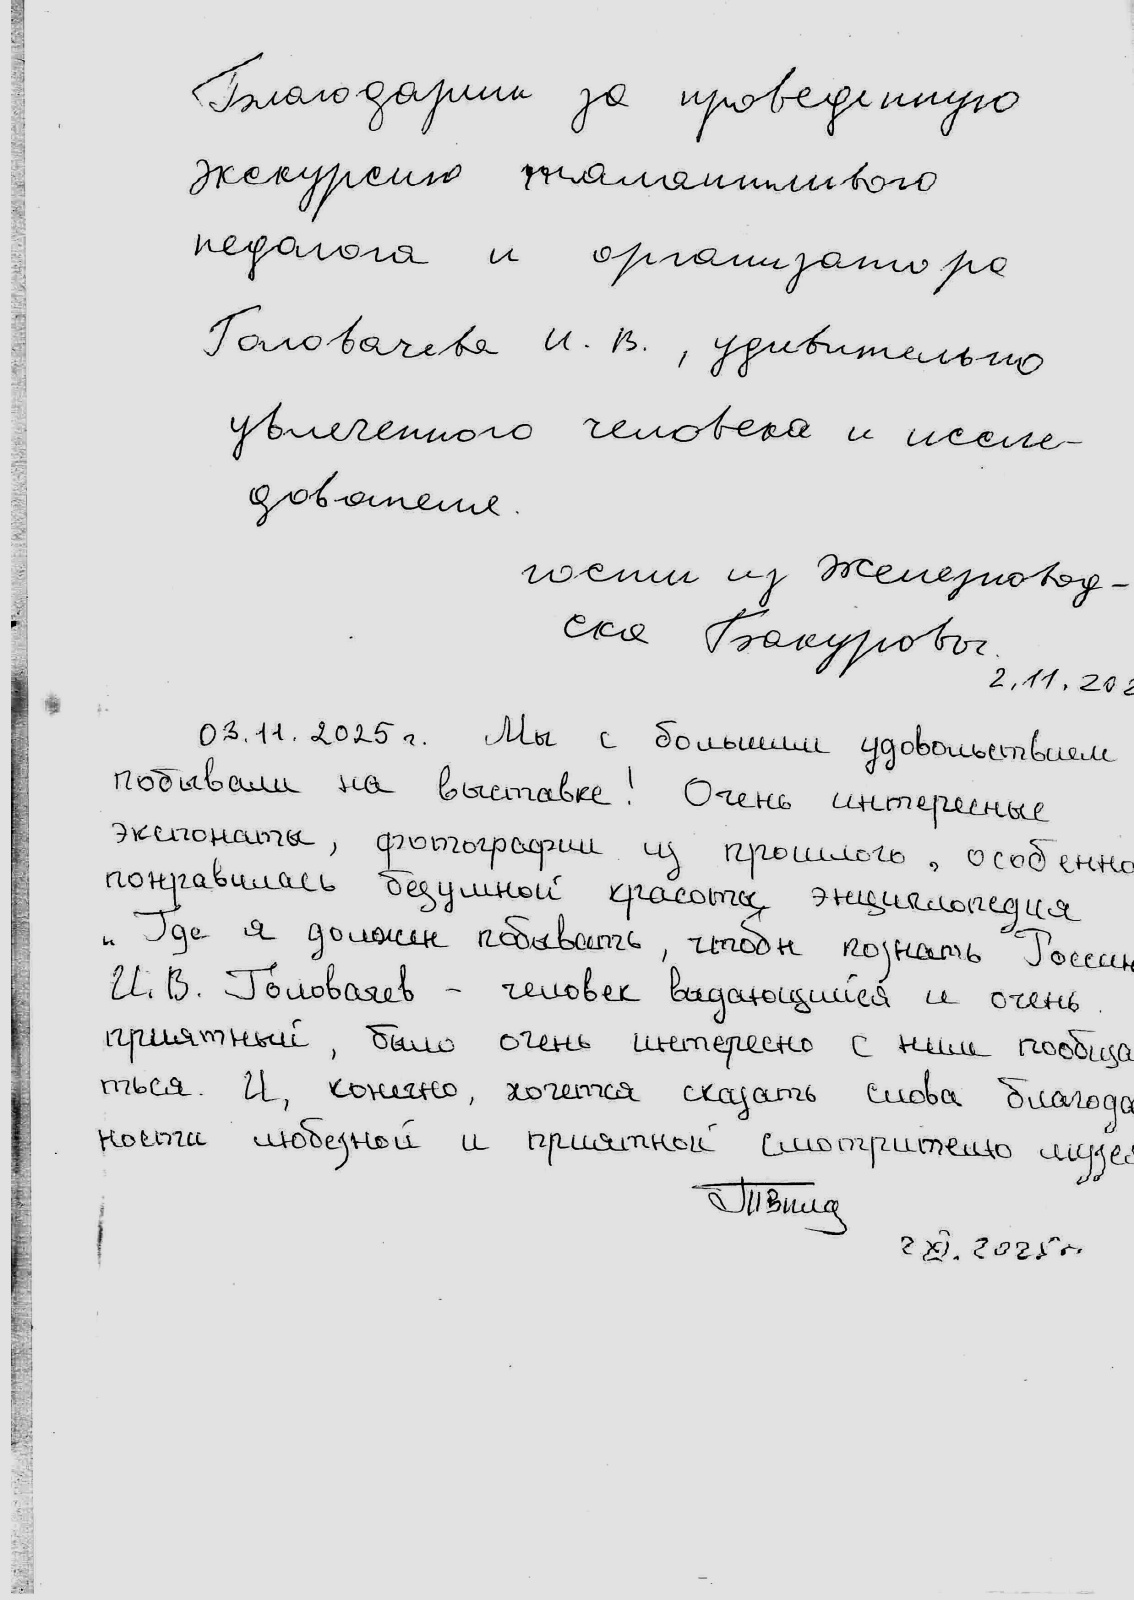 Благодарим за проведенную
экскурсию талантливого
педагога и организатора
Головачева И. В., удивительно
увлеченного человека и иссле-
дователя.
гости из Железновод-
ска Бакуровы.
2.11.202
03.11.2025 г. Мы с большим удовольствием
побывали на выставке! Очень интересные
экспонаты, фотографии из прошлого, особенно
понравилась безумной красоты энциклопедия
„Где я должен побывать, чтобы познать Россию
И. В. Головачев – человек выдающийся и очень
приятный, было очень интересно с ним пообща
ться. И, конечно, хочется сказать слова благода
ности любезной и приятной смотрителю музе
2 XI. 2025 г.